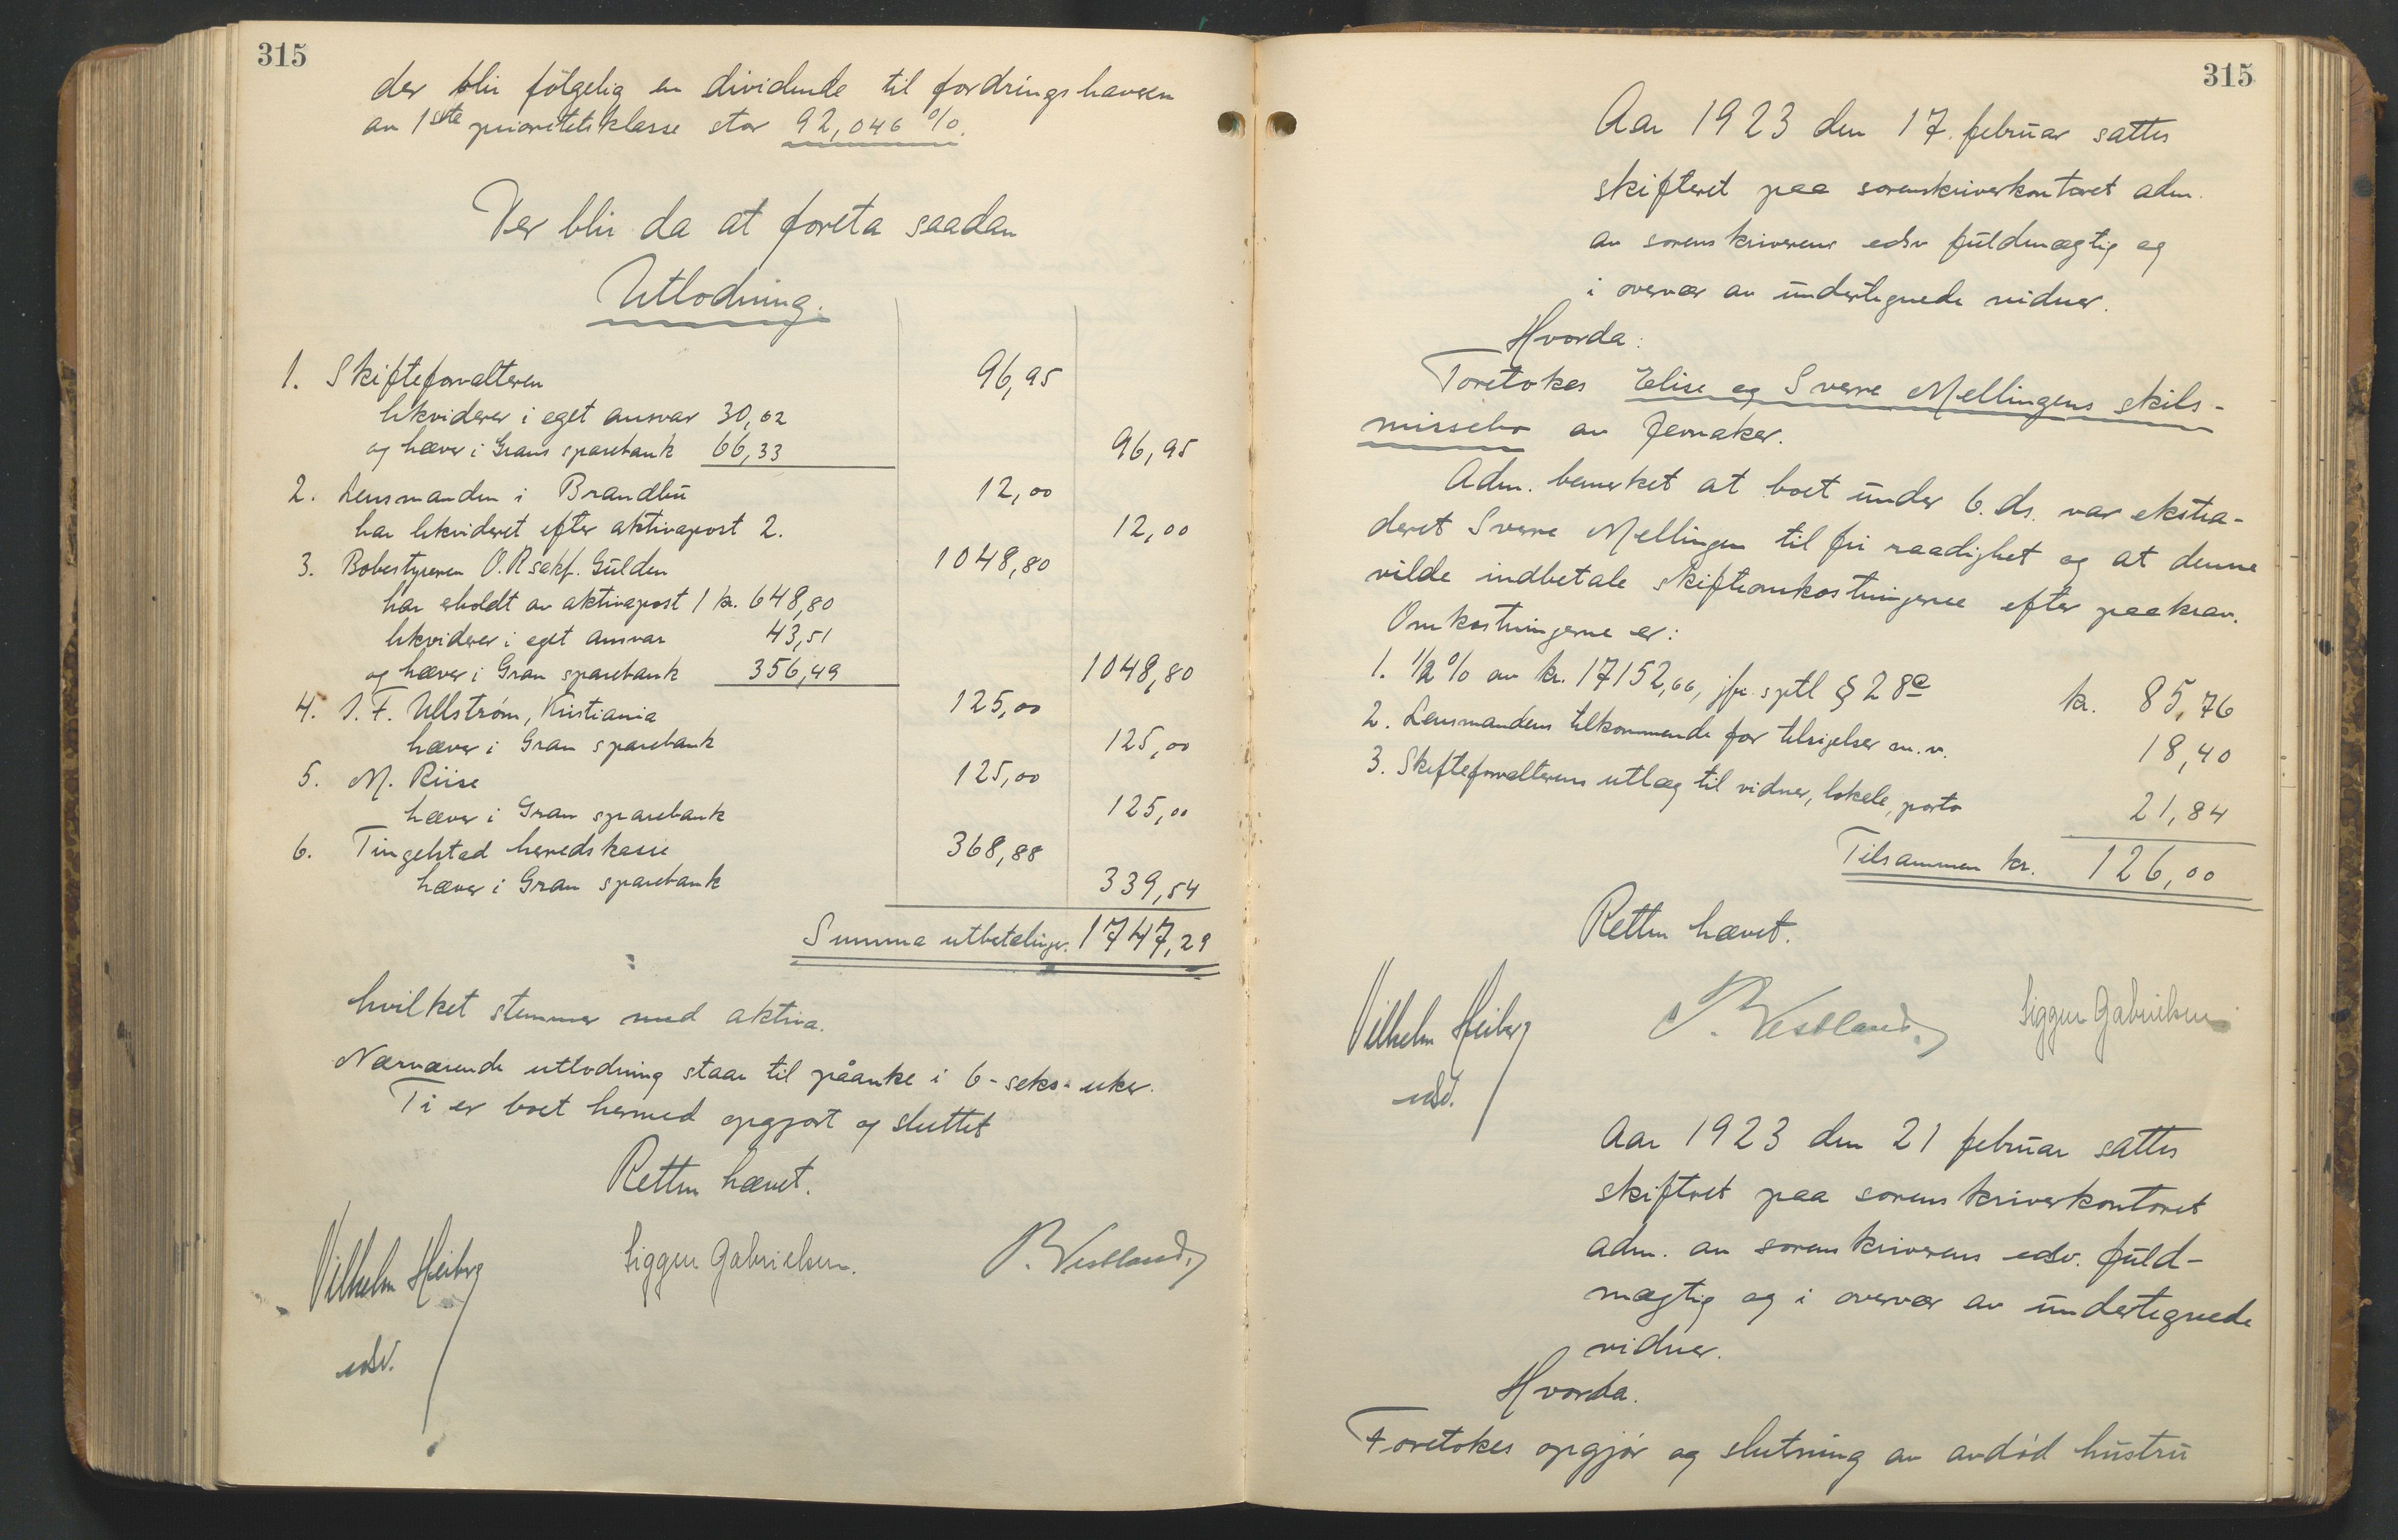 315
der blir følgelig en dividende til fordringshaveren
av 1ste prioritetsklasse stor 92,046 %.
Der blir da at foreta saadan
Utlodning.
1. Skifteforvalteren 96,95
likviderer i eget ansvar 30,62
og hæver i Grans sparebank 66,33 96,95
2. Lensmanden i Brandbu 12,00
har likvideret efter aktivapost 2. 12,00
3. Bobestyreren O.R.sakf. Gulden 1048,80
har erholdt av aktivapost 1 kr. 648,80
likviderer i eget ansvar 43,51
og hæver i Gran sparebank 356,49 1048,80
4. J. F. Ullstrøm, Kristiania 125,00
hæver i Gran sparebank 125,00
5. M. Riise 125,00
hæver i Gran sparebank 125,00
6. Tingelstad herredskasse 368,88
hæver i Gran sparebank 339,54
Summa utbetalinger. 1747,29
hvilket stemmer med aktiva.
Nærværende utlodning staar til påanke i 6-seks-uker.
Ti er boet hermed opgjort og sluttet
Retten hævet.
Vilhelm Heiberg Siggen Gabrielsen. P. Vestland.
edsv.
315
Aar 1923 den 17. februar sattes
skifteret paa sorenskriverkontoret adm.
av sorenskriverens edsv fuldmægtig og
i overvær av undertegnede vidner.
Hvorda:
Foretokes Elise og Sverre Mellingens skils-
missebo av Jevnaker.
Adm. bemerket at boet under 6. ds. var ekstra-
deret Sverre Mellingen til fri raadighet og at denne
vilde indbetale skifteomkostningerne efter paakrav.
Omkostningerne er:
1. 1/2 % av kr. 17152,66, jfr. sptl § 28a kr. 85,76
2. Lensmandens tilkommende for tilsigelser m.v. 18,40
3. Skifteforvalterens utlæg til vidner, lokale, porto 21,84
Tilsammen kr. 126,00
Retten hævet.
Vilhelm Heiberg P. Vestland. Siggen Gabrielsen
edsv.
Aar 1923 den 21 februar sattes
skiftret paa sorenskriverkontoret
adm. av sorenskriverens edsv. fuld-
mægtig og i overvær av undertegnede
vidner.
Hvorda.
Foretokes opgjør og slutning av avdød hustru